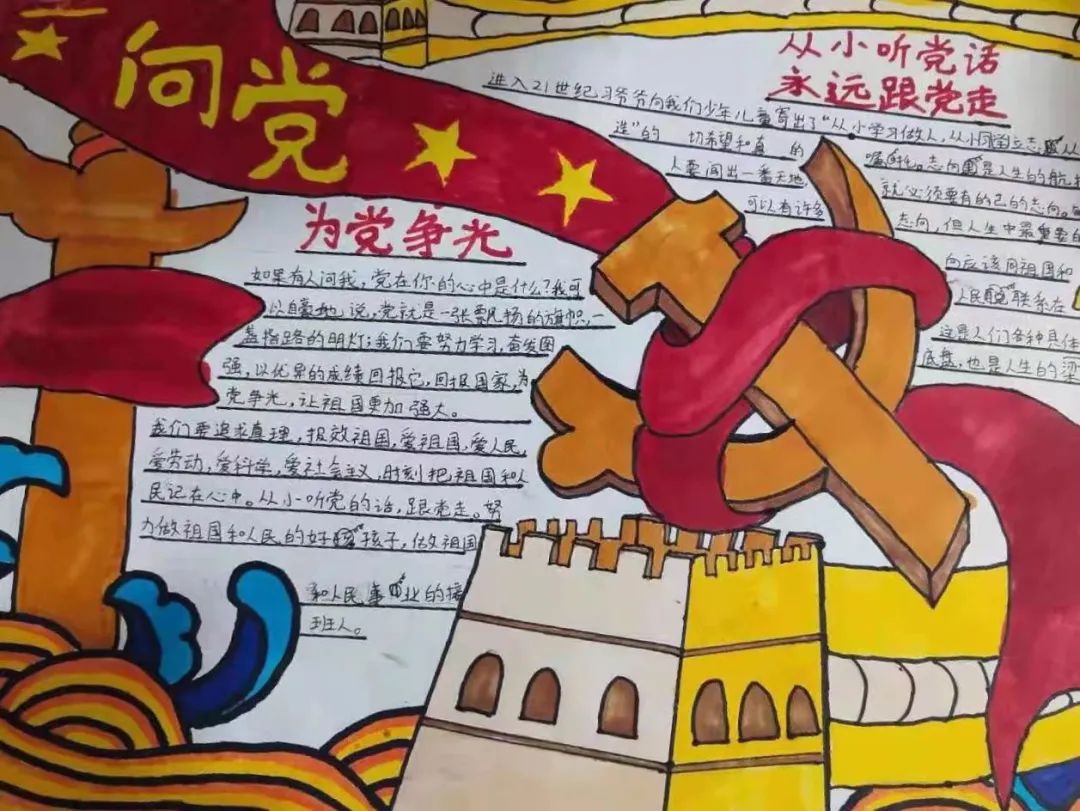 向党
为党争光
如果有人问我，党在你的心中是什么？我可
以自豪地说，党就是一张飘扬的旗帜，一
盏指路的明灯；我们要努力学习，奋发图
强，以优异的成绩回报它，回报国家，为
党争光，让祖国更加强大。
我们要追求真理，报效祖国，爱祖国，爱人民，
爱劳动，爱科学，爱社会主义，时刻把祖国和人
民记在心中。从小听党的话，跟党走。努
力做祖国和人民的好孩子，做祖国
和人民事业的接
班人。
从小听党话
永远跟党走
进入21世纪习爷爷向我们少年儿童寄出了“从小学习做人，从小立志，从
造”的 切希望和真 的
人要闯出一番天地，
可以有许多
嘱托。志向是人生的航
就必须要有的己的志向。
志向，但人生中最重要的
向应该同祖国和
人民联系在
这是人们各种具体
底盘，也是人生的梁